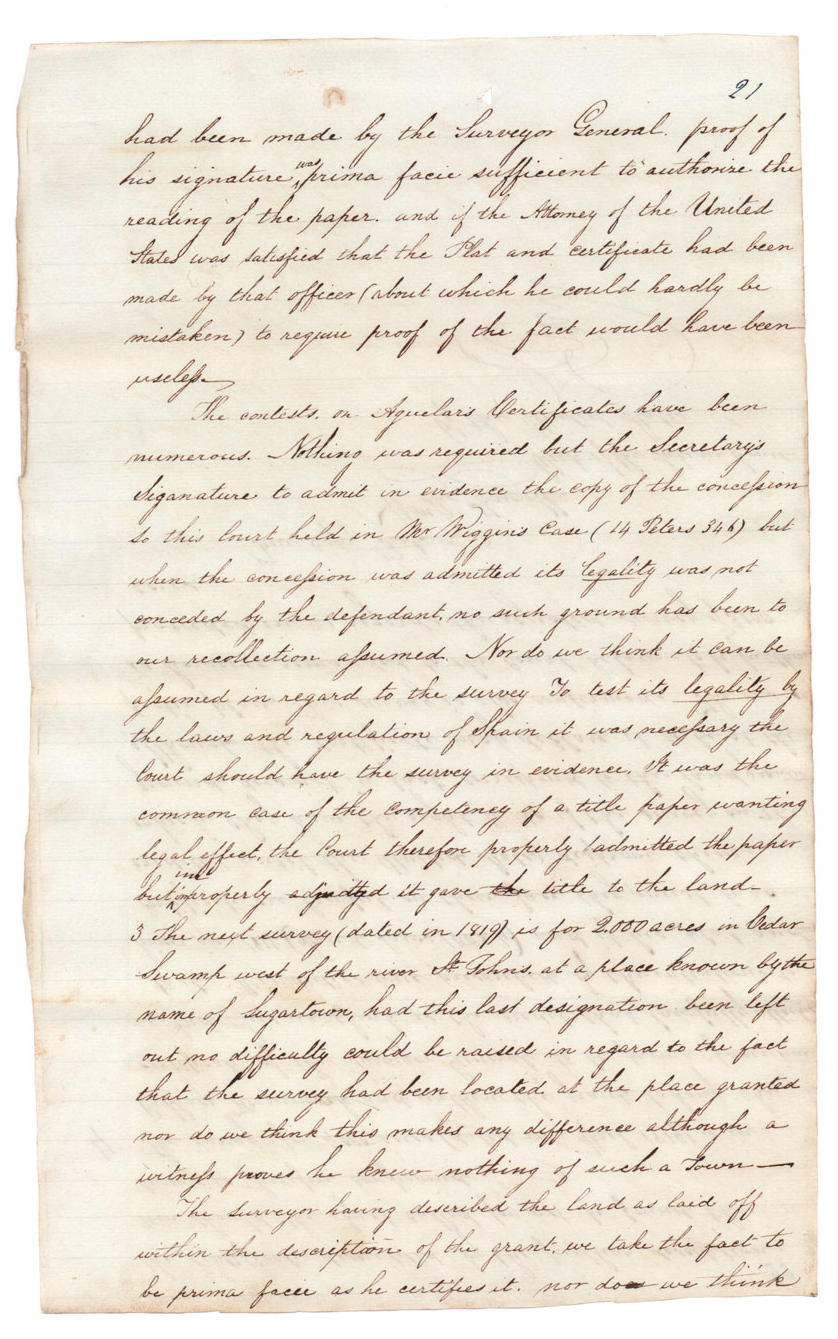 21
had been made by the Surveyor General. proof of
his signature was prima facie sufficient to authorize the
reading of the paper. and if the Attorney of the United
States was satisfied that the Plat and certificate had been
made by that officer (about which he could hardly be
mistaken) to require proof of the fact would have been
useless
The contests. on Aguelar's Certificates have been
numerous. Nothing was required but the Secretary's
Siganature to admit in evidence the copy of the concession
so this Court held in Mr Wiggin's Case (14 Peters 346) but
when the concession was admitted its legality was not
conceded by the defendant, no such ground has been to
our recollection assumed. Nor do we think it can be
assumed in regard to the survey To test its legality by
the laws and regulation of Spain it was necessary the
Court should have the survey in evidence. It was the
common case of the competency of a title paper wanting
legal effect, the Court therefore properly admitted the paper
but improperly adjudged it gave the title to the land.
3 The next survey (dated in 1819) is for 2.000 acres in Cedar
Swamp west of the river St Johns. at a place known by the
name of Sugartown, had this last designation been left
out no difficulty could be raised in regard to the fact
that the survey had been located at the place granted
nor do we think this makes any difference although a
witness proves he knew nothing of such a Town—
The surveyor having described the land as laid off
within the description of the grant, we take the fact to
be prima facie as he certifies it. nor do we think